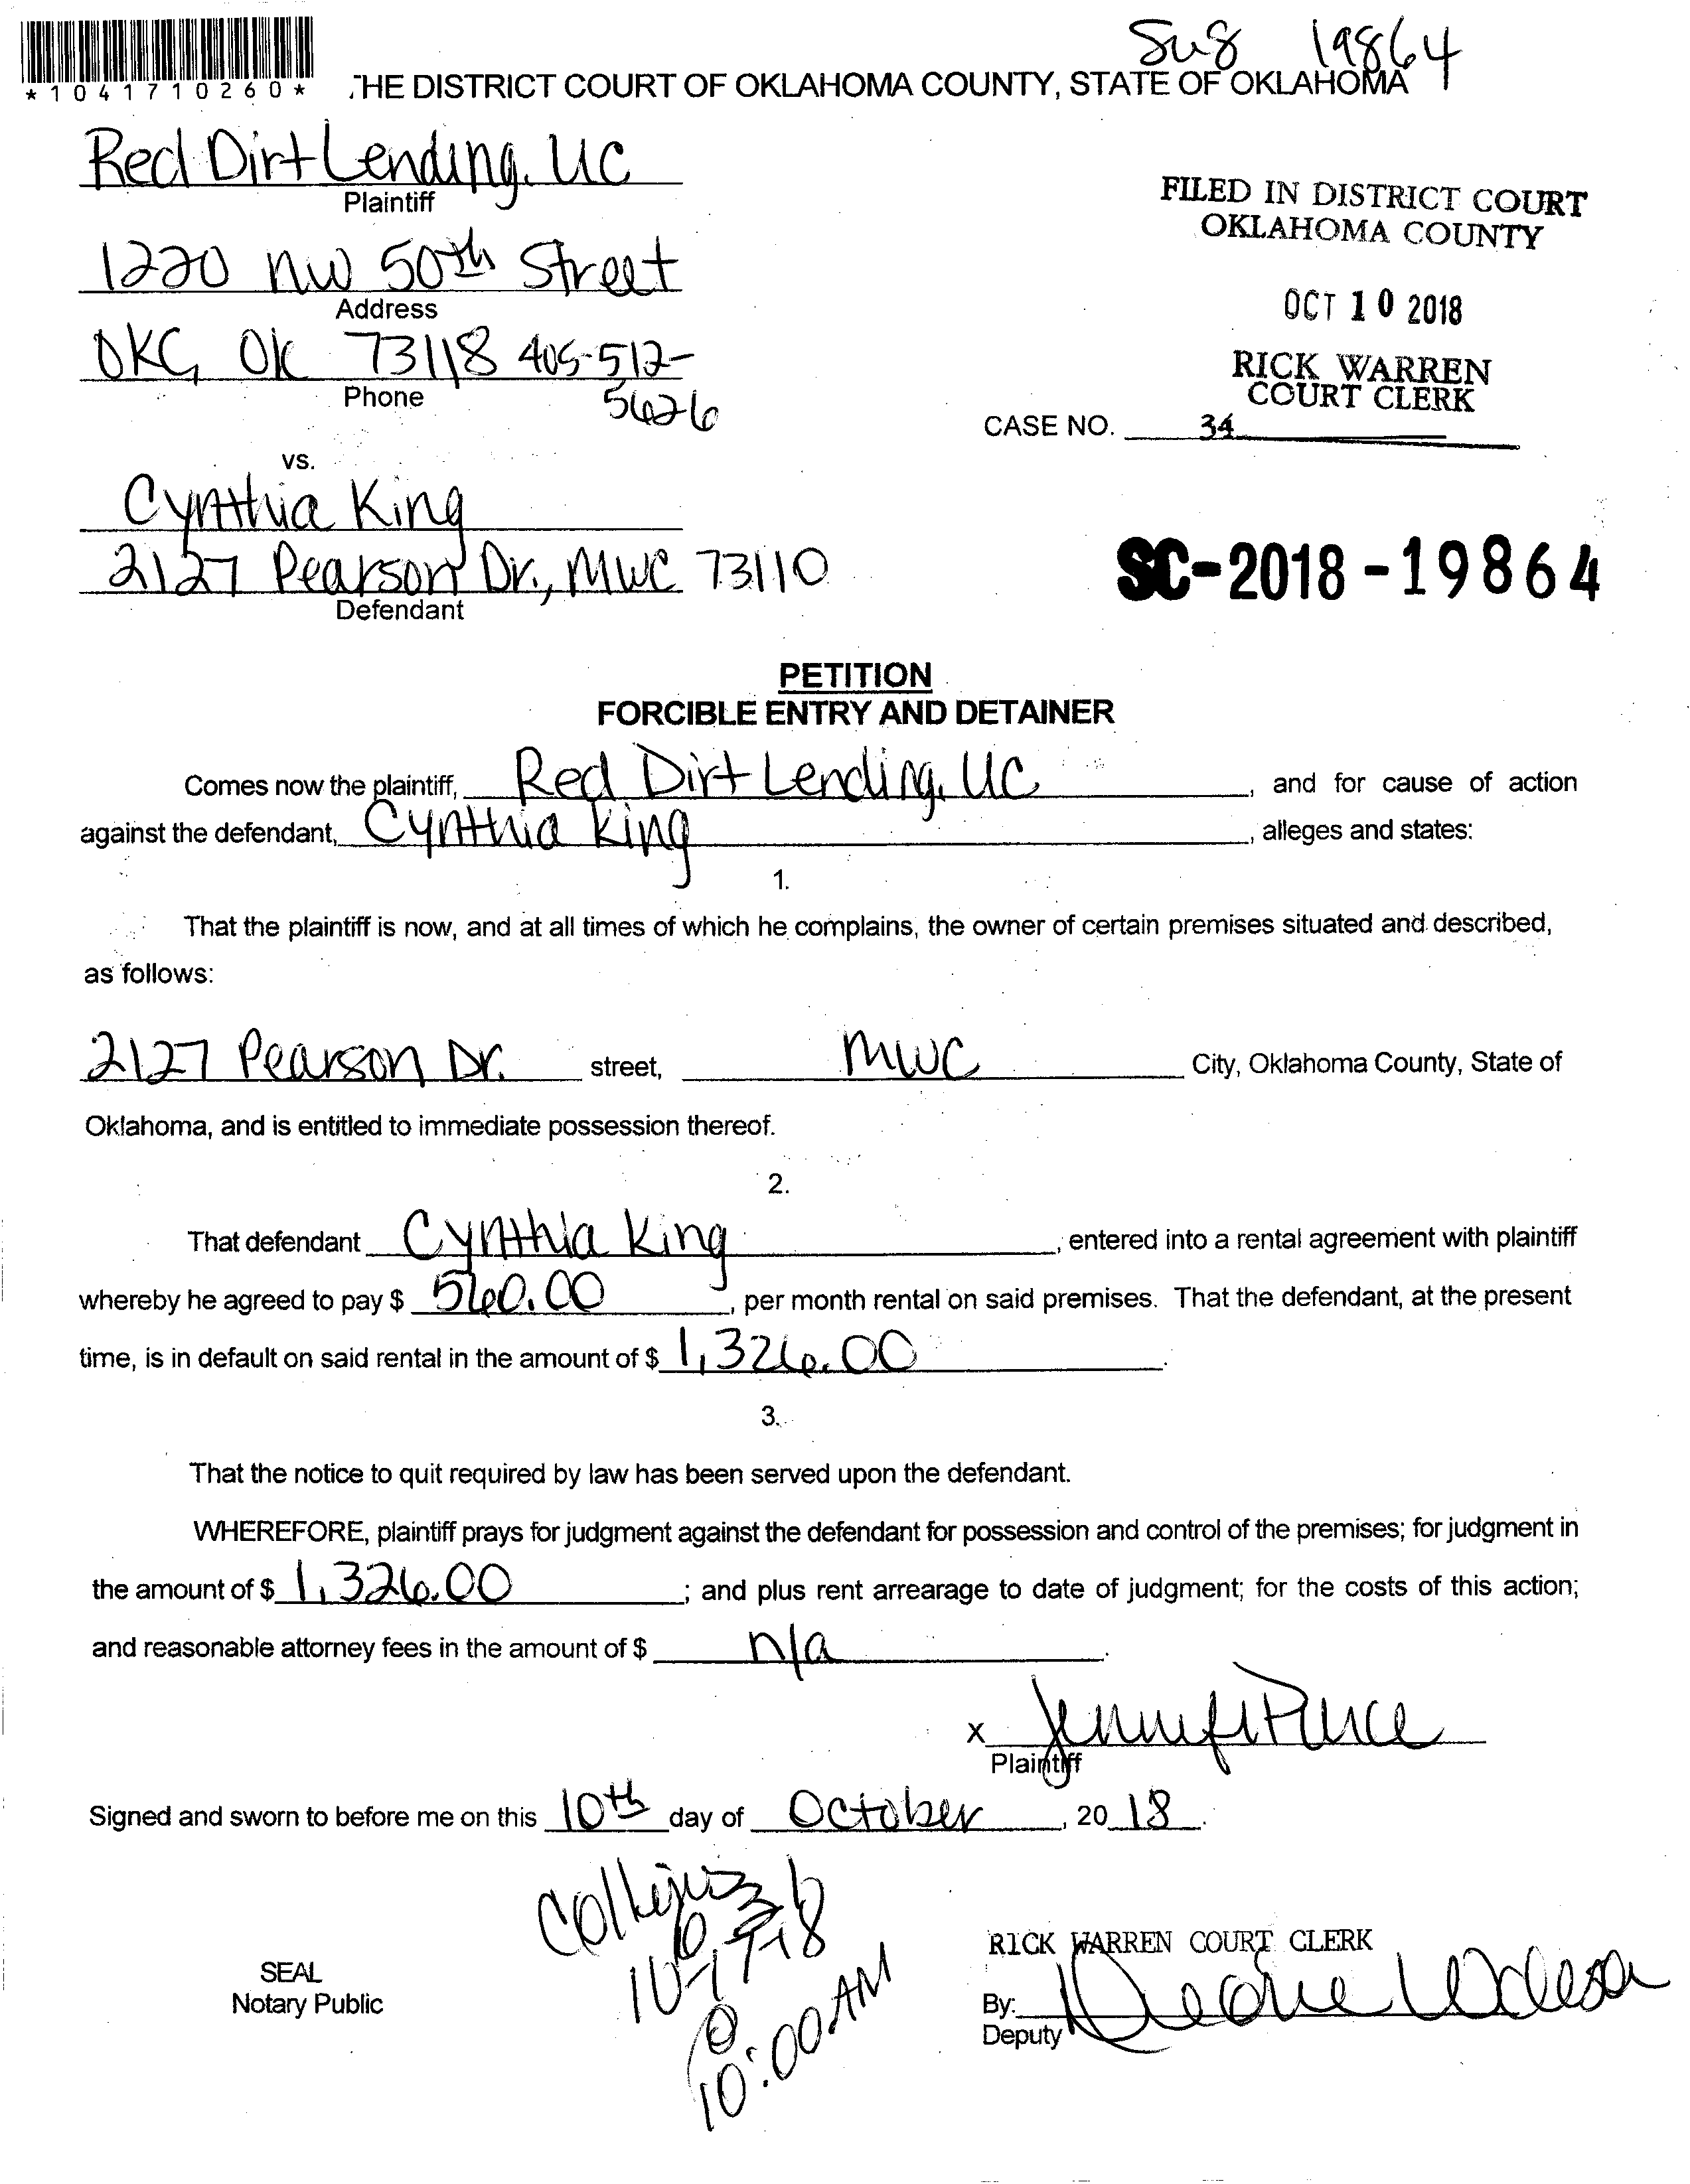 Su8 19864
*1041710260*
THE DISTRICT COURT OF OKLAHOMA COUNTY, STATE OF OKLAHOMA
Red Dirt Lending, LLC
Plaintiff
1220 NW 50th Street
Address
OKC, OK 73118 405-512-
5626
Phone
FILED IN DISTRICT COURT
OKLAHOMA COUNTY
OCT 10 2018
RICK WARREN
COURT CLERK
CASE NO. 34
vs.
Cynthia King
2127 Pearson Dr., MWC 73110
Defendant
SC-2018-19864
PETITION
FORCIBLE ENTRY AND DETAINER
Comes now the plaintiff, Red Dirt Lending, LLC, and for cause of action
against the defendant, Cynthia King, alleges and states:
1.
That the plaintiff is now, and at all times of which he complains, the owner of certain premises situated and described,
as follows:
2127 Pearson Dr. street, MWC City, Oklahoma County, State of
Oklahoma, and is entitled to immediate possession thereof.
2.
That defendant Cynthia King, entered into a rental agreement with plaintiff
whereby he agreed to pay $ 560.00, per month rental on said premises. That the defendant, at the present
time, is in default on said rental in the amount of $ 1,326.00.
3.
That the notice to quit required by law has been served upon the defendant.
WHEREFORE, plaintiff prays for judgment against the defendant for possession and control of the premises; for judgment in
the amount of $ 1,326.00; and plus rent arrearage to date of judgment; for the costs of this action;
and reasonable attorney fees in the amount of $ n/a.
x Jennifer Pierce
Plaintiff
Signed and sworn to before me on this 10th day of October, 2018.
Collins
@
10:00 AM
SEAL
Notary Public
RICK WARREN COURT CLERK
By:
Deputy